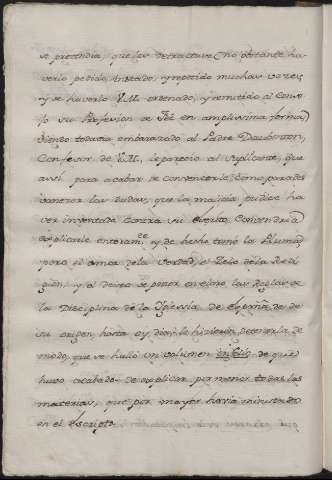 se pretendia, que las detractase, no obstante ha
verlo pedido, instado, y repetido muchas vozes,
y se haverlo V.M. ordenado, y remitido al Conse
jo su Profesion de Feè en amplissima forma,
siendo todavia embarazado al Padre Daubenton,
Confesor de V.M. le parecio al suplicante, que
assi para acabar de convencerle, como para des
vanezer las dudas, que la malicia pudiese ha
ver inventado contra su escrito, convendria
explicarle enteram.te y de hecho tomó la Pluma,
pero el amor de la verdad, el Zelo de la Reli
gion, y el deseo de poner en claro las Reglas de
la Disciplina de la Iglesia de España desde
su origen, hasta oy dia, le hizieron detenerla de
modo, que se halló un volumen en folio de que
huvo acabado de explicar por menor todas las
materias, que por mayor havia ministrado
en el escripto